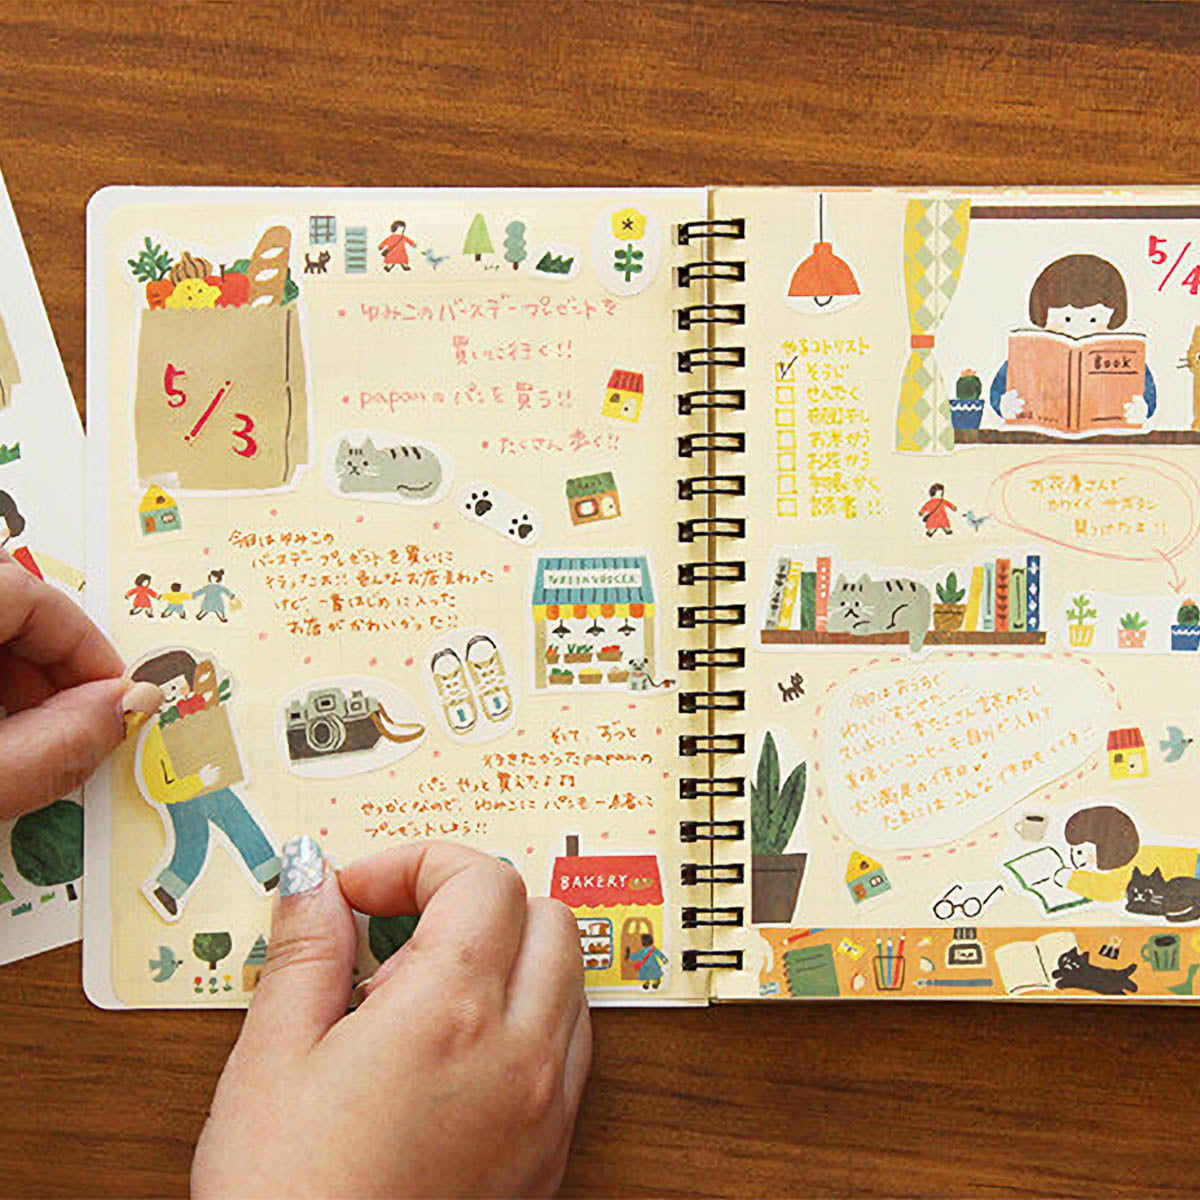 5/3
・ゆみこのバースデープレゼントを
買いに行く!!
・papanのパンを買う!!
・たくさん歩く!!
今日はゆみこの
バースデープレゼントを買いに
そうったよ!! 色んなお店まわった
けど、一番はじめに入った
お店がかわいかった!!
そして、ずっと
行きたかったpapanの
パン やっと買えたよ
せっかくなので、ゆみこに パンも一緒に
プレゼントしよう!!
BAKERY
5/4
Book
やるコトリスト
そうじ
せんたく
布団干し
お茶かう
お花かう
手帳かく
読書!!
お花屋さんで
カワイイ サボテン
見つけたよ!!
今日はおうちで
ゆっくりすごせた
美味しいコーヒーを自分で入れて
大満足の休日
たまにはこんな休日もステキ